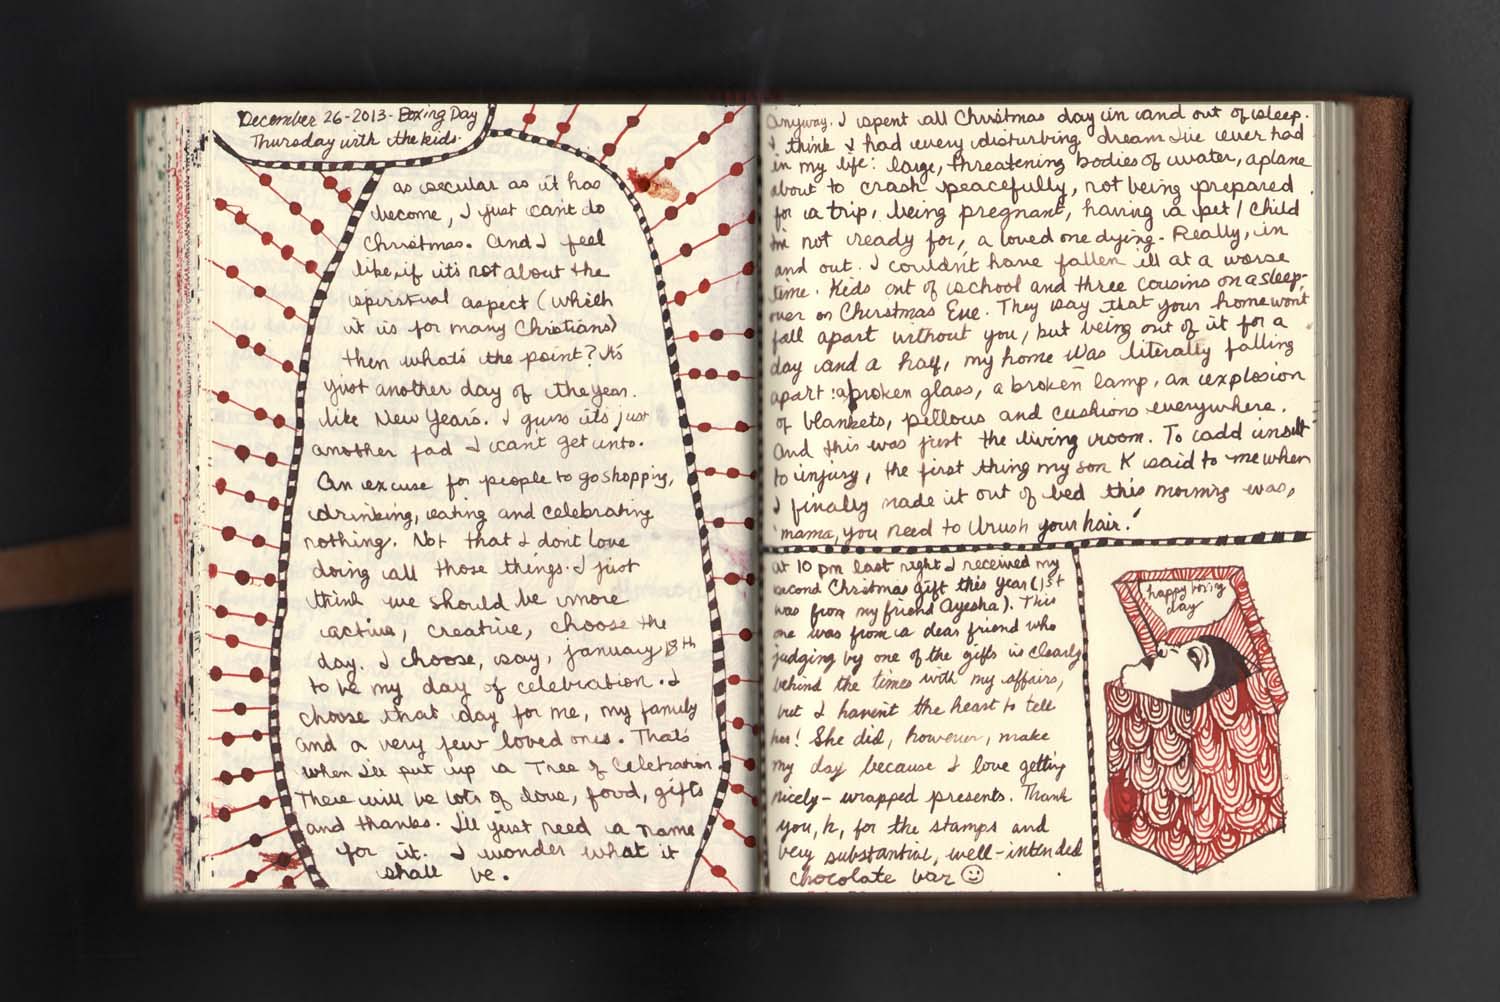 December 26-2013- Boxing Day
Thursday with the kids.
as secular as it has
become, I just can't do
Christmas. And I feel
like, if it's not about the
spiritual aspect (which
it is for many Christians)
then what's the point? It's
just another day of the year.
like New Year's. I guess it's just
another fad I can't get into.
An excuse for people to go shopping,
drinking, eating and celebrating
nothing. Not that I don't love
doing all those things. I just
think we should be more
active, creative, choose the
day. I choose, say, January 18th
to be my day of celebration. I
choose that day for me, my family
and a very few loved ones. That's
when I'll put up a Tree of Celebration.
There will be lots of love, food, gifts
and thanks. I'll just need a name
for it. I wonder what it
shall be.
Anyway. I spent all Christmas day in and out of sleep.
I think I had every disturbing dream I've ever had
in my life: large, threatening bodies of water, a plane
about to crash peacefully, not being prepared
for a trip, being pregnant, having a pet/child
I'm not ready for, a loved one dying. Really, in
and out. I couldn't have fallen ill at a worse
time. Kids out of school and three cousins on a sleep-
over on Christmas Eve. They say that your home won't
fall apart without you, but being out of it for a
day and a half, my home was literally falling
apart: a broken glass, a broken lamp, an explosion
of blankets, pillows and cushions everywhere.
And this was just the living room. To add insult
to injury, the first thing my son K said to me when
I finally made it out of bed this morning was,
'mama, you need to brush your hair.'
At 10 pm last night I received my
second Christmas gift this year (1st
was from my friend Ayesha). This
one was from a dear friend who
judging by one of the gifts is clearly
behind the times with my affairs,
but I haven't the heart to tell
her! She did, however, make
my day because I love getting
nicely-wrapped presents. Thank
you, h, for the stamps and
very substantial, well-intended
chocolate bar ☺
happy boxing
day